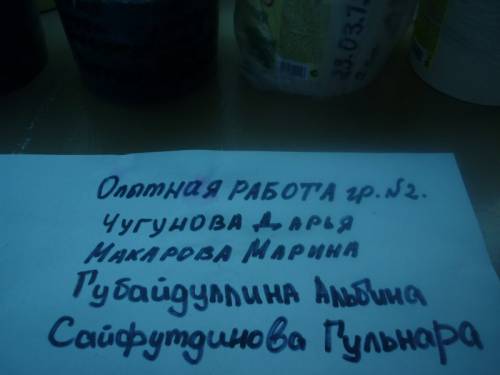 23.03.1
Опытная РАБОТА гр. №2.
ЧУГУНОВА ДАРЬЯ
МАКАРОВА МАРИНА
Губайдуллина Альбина
Сайфутдинова Гульнара